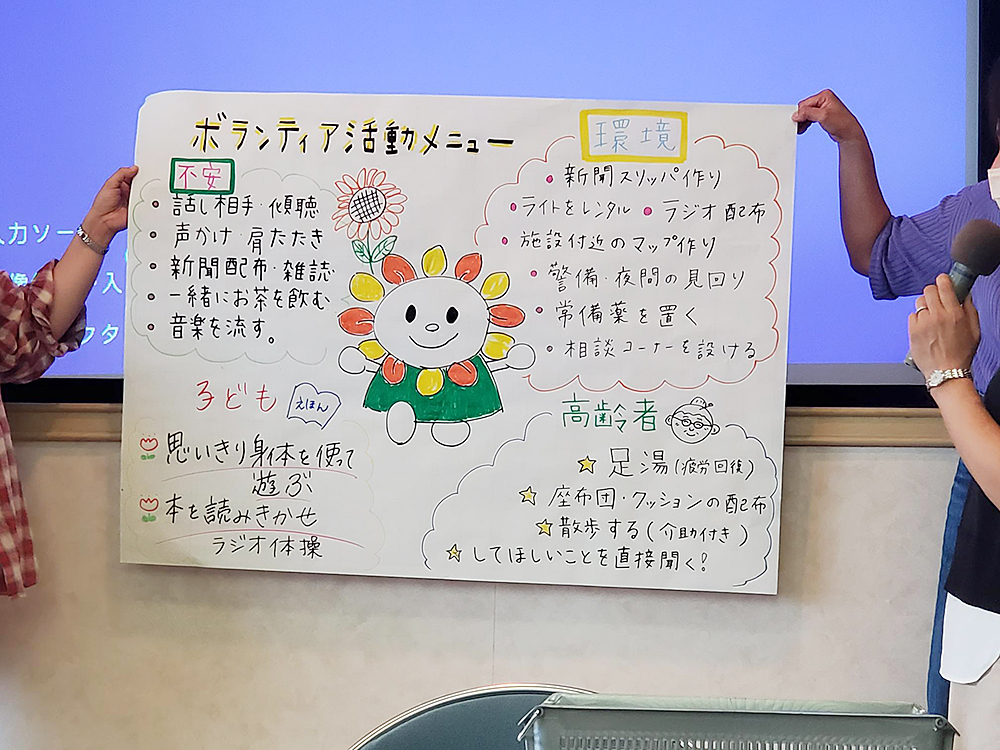 ボランティア活動メニュー
不安
・話し相手・傾聴
・声かけ・肩たたき
・新聞配布・雑誌
・一緒にお茶を飲む
・音楽を流す。
環境
・新聞スリッパ作り
・ライトをレンタル ・ラジオ配布
・施設付近のマップ作り
・警備・夜間の見回り
・常備薬を置く
・相談コーナーを設ける
子ども
えほん
思いきり身体を使って
遊ぶ
本を読みきかせ
ラジオ体操
高齢者
☆足湯(疲労回復)
☆座布団・クッションの配布
☆散歩する(介助付き)
☆してほしいことを直接聞く!
入力ソー